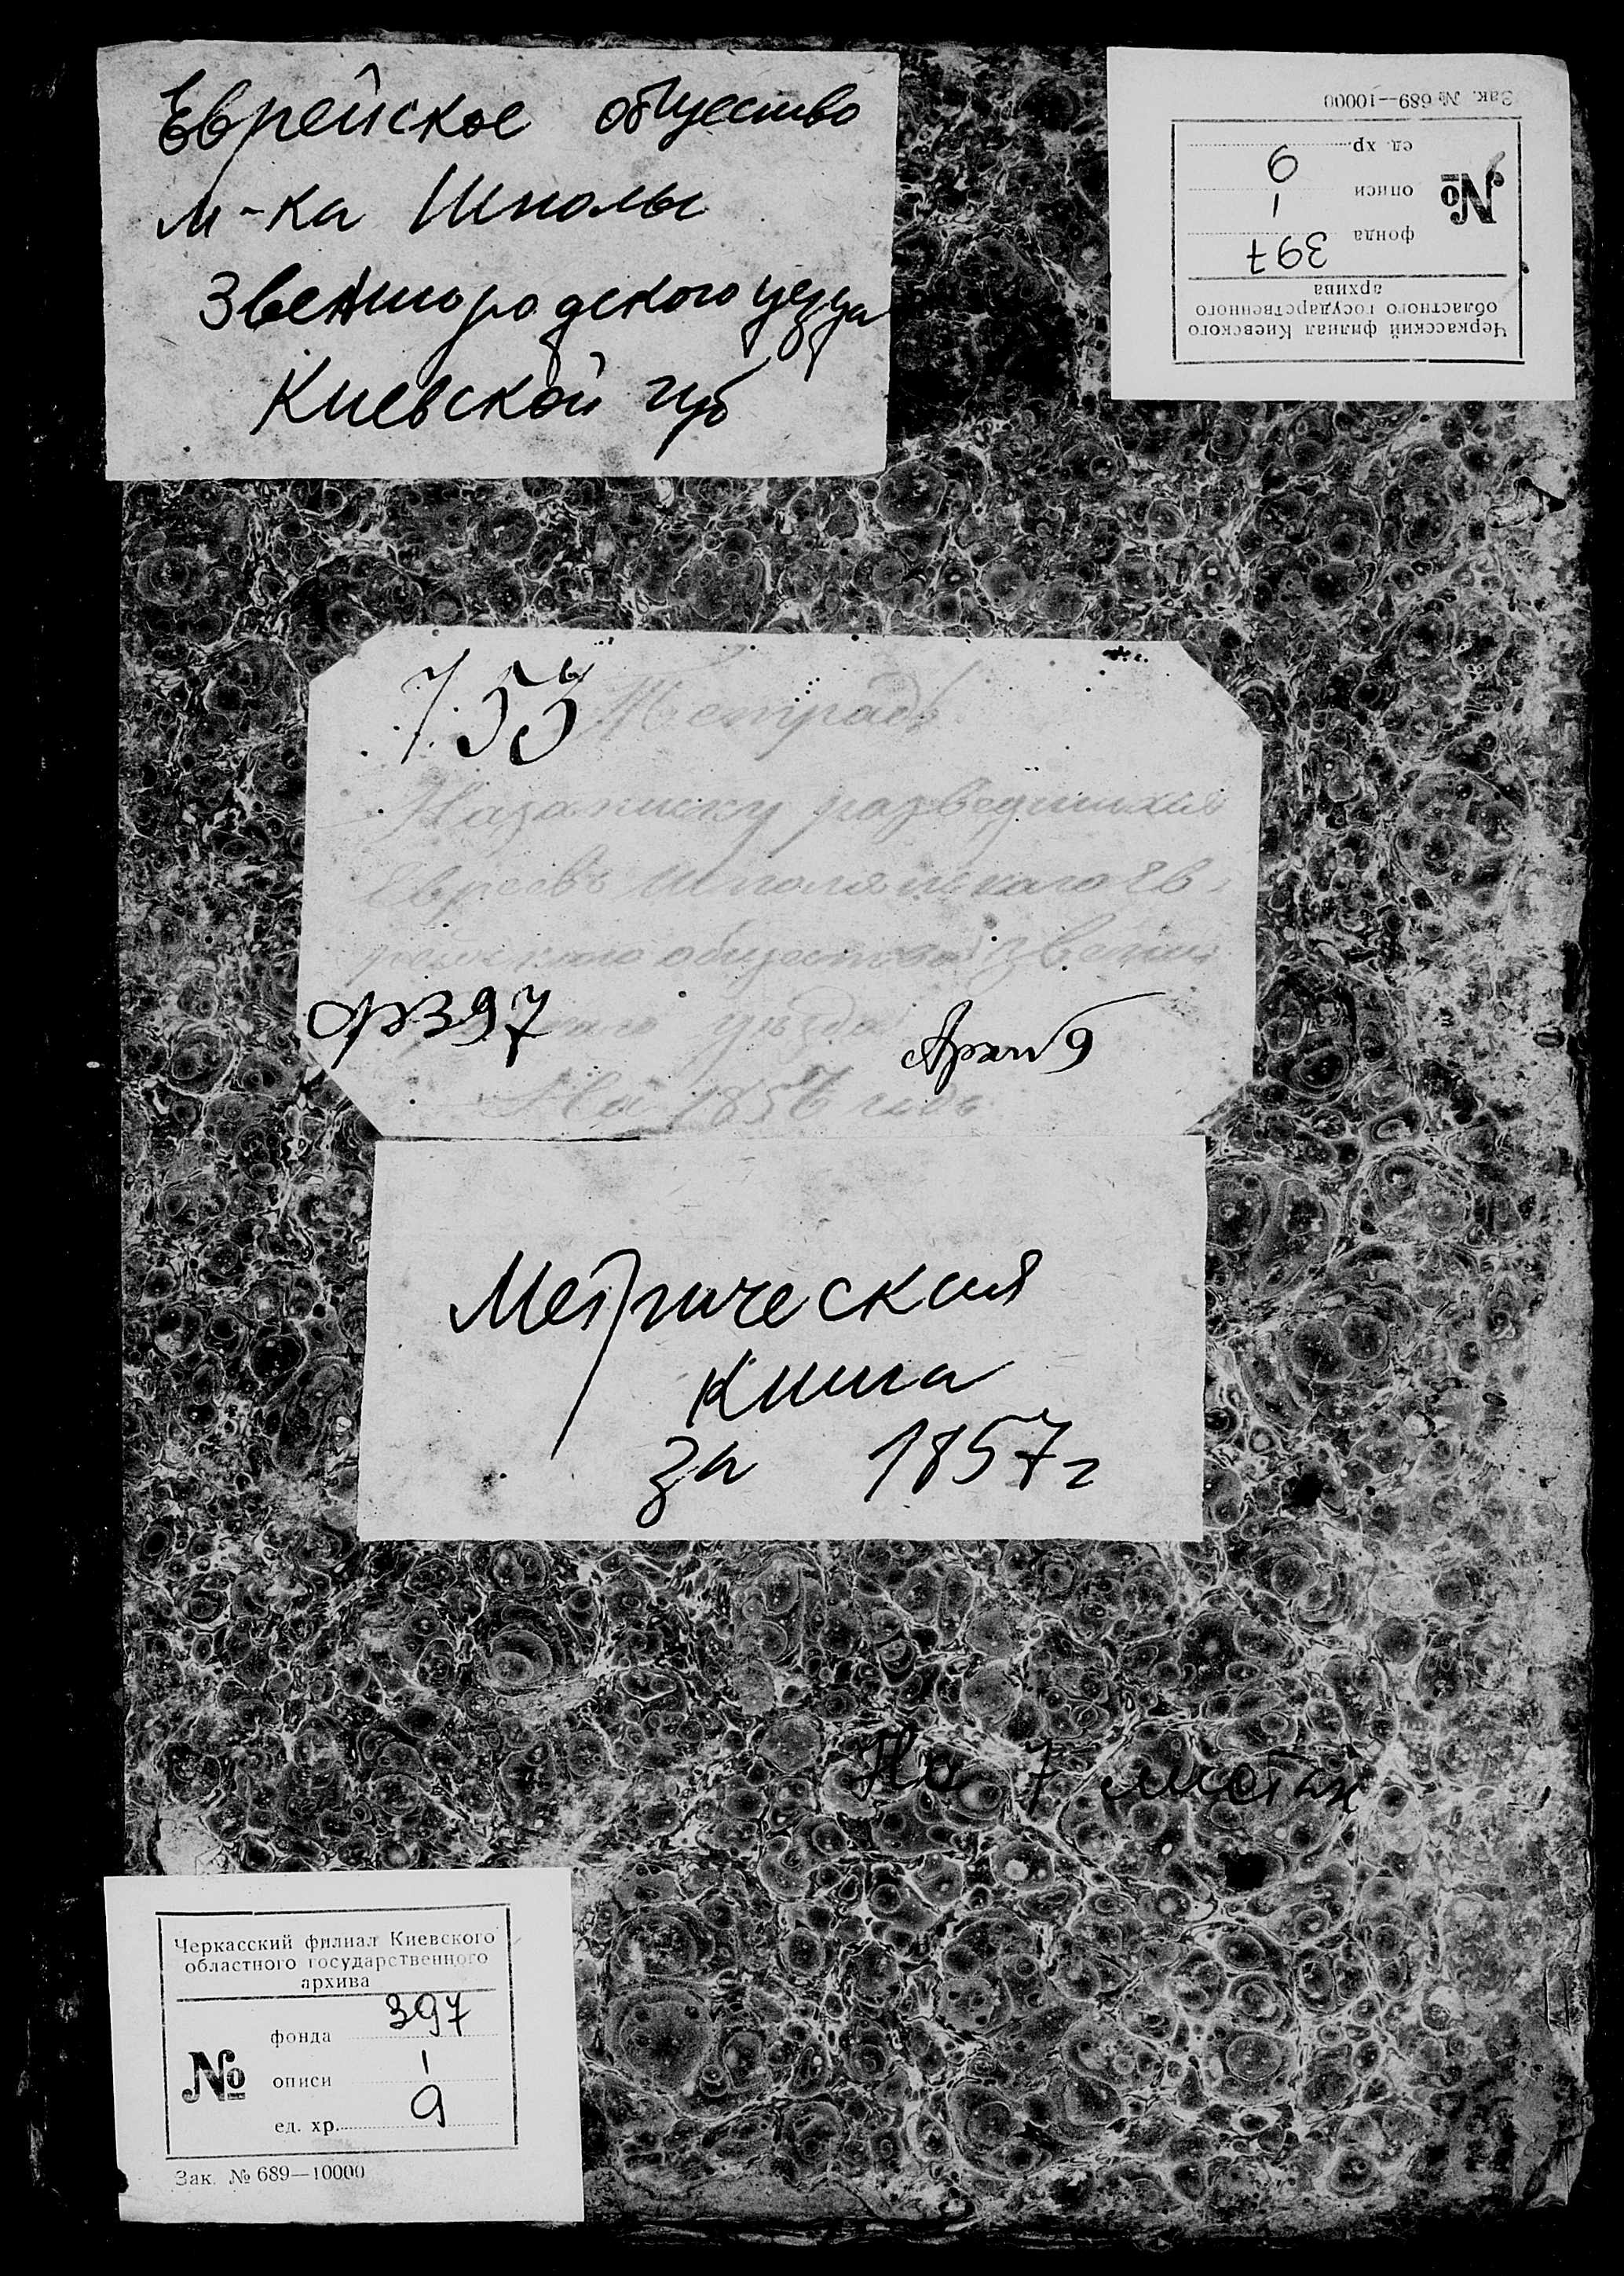 Еврейское общество
м-ка Шполы
Звенигородского уезда
Киевской губ
Зак. № 689—10000
Черкасский филиал Киевского
областного государственного
архива
№
фонда 397
описи 1
ед. хр. 9
753
Тетрадь
Назаписку разведшихся
Евреевъ Шполянскаго Ев-
рейскаго общества Звени
уезда
На 1857 годъ
ф 397
Архи 9
Метрическая
книга
за 1857 г
На 7 листах
Черкасский филиал Киевского
областного государственного
архива
№
фонда 397
описи 1
ед. хр. 9
Зак. № 689—10000